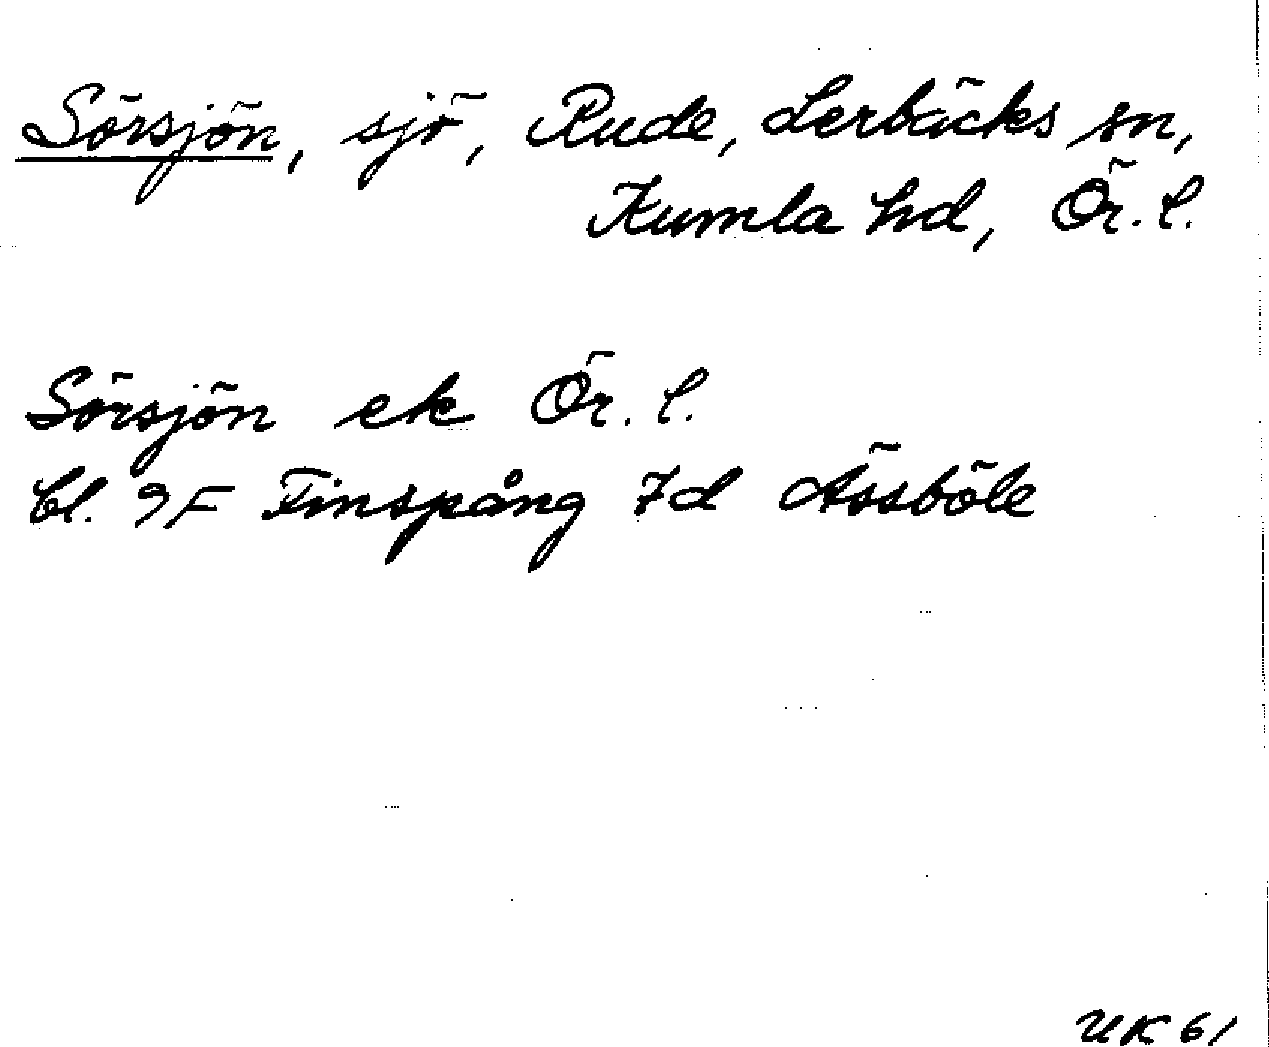 Sörsjön, sjö, Rude, Lerbäcks sn,
Kumla hd, Ör. l.
Sörsjön ek Ör. l.
bl. 9F Finspång 7d Åssböle
UK 61